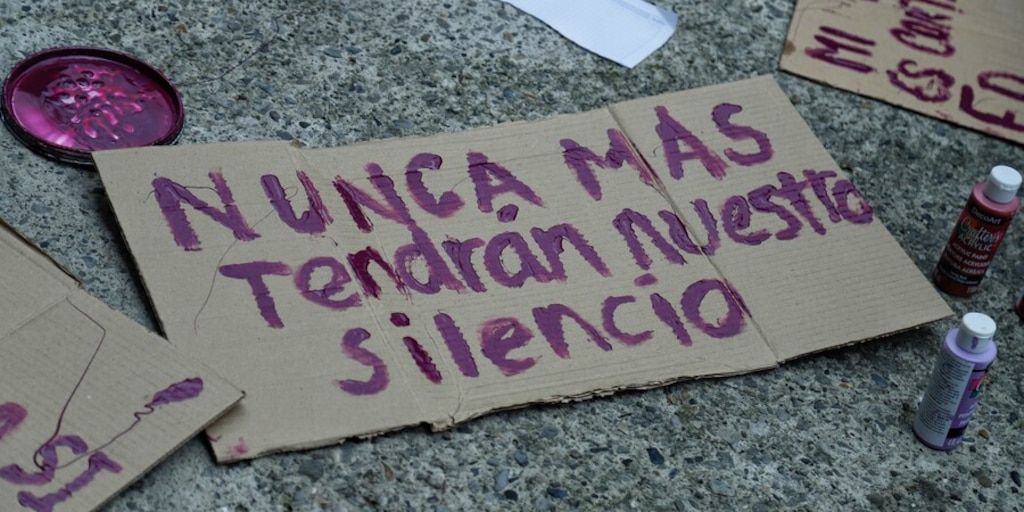 NUNCA MAS
Tendrán Nuestro
silencio
MI
ES CART
DecoArt
Crafter's
ACRYLIC